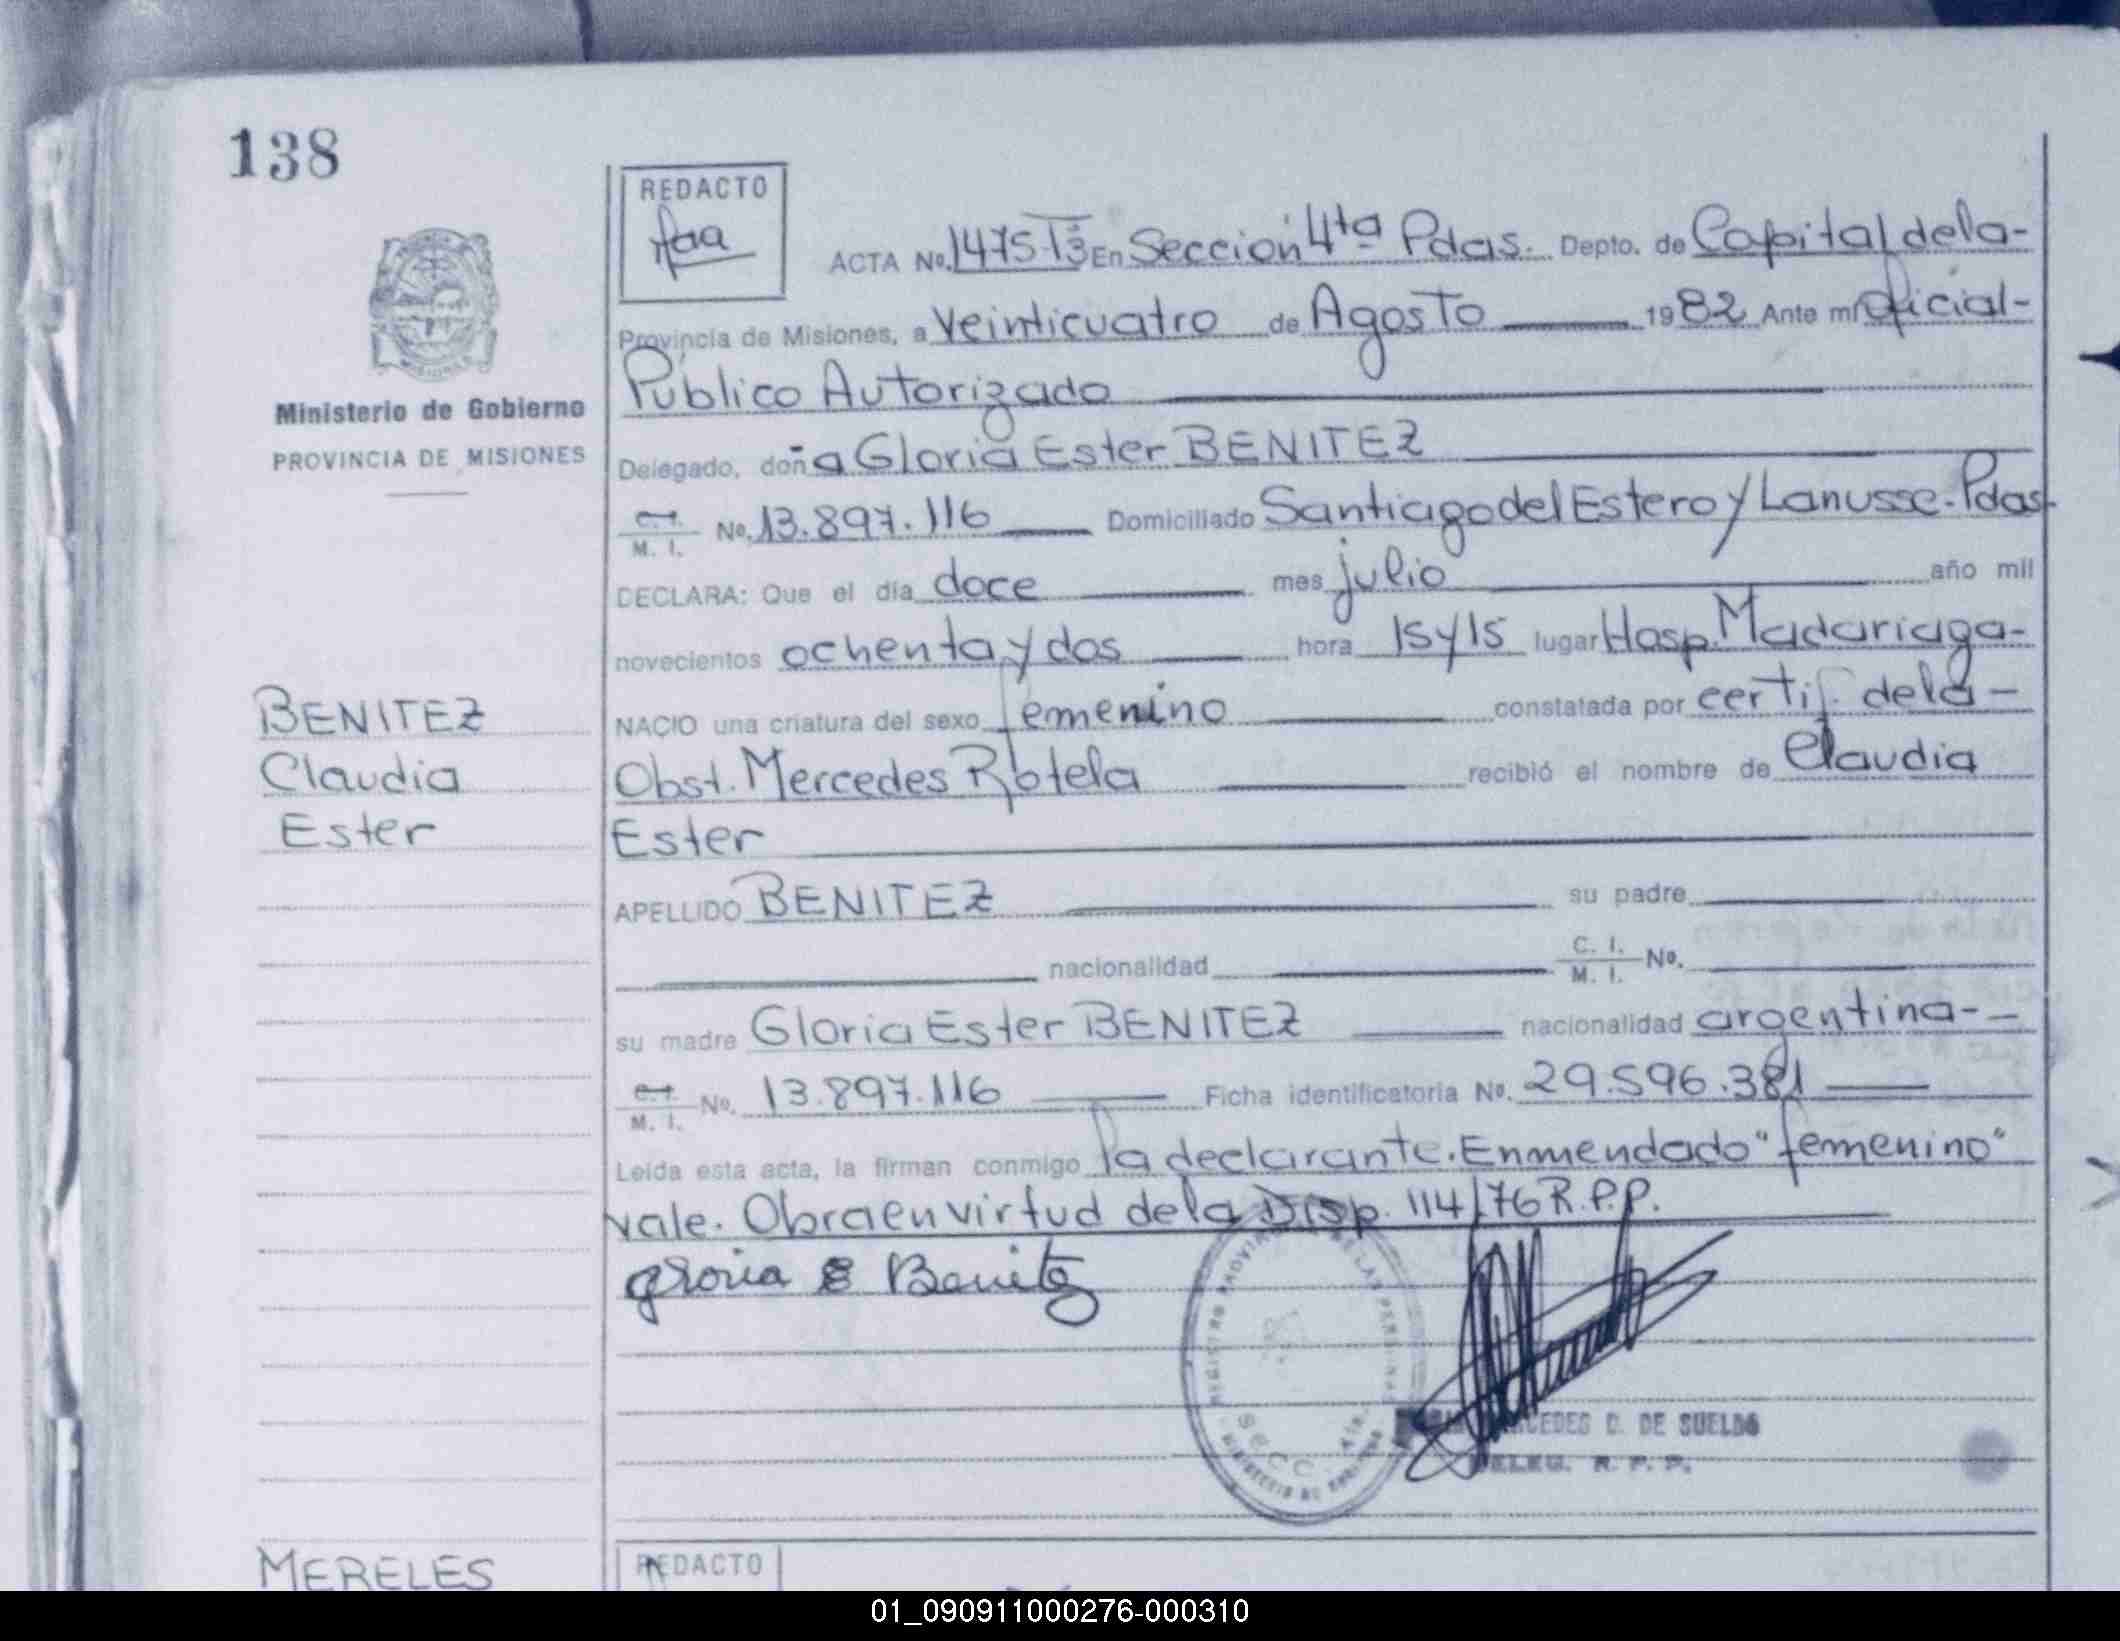 138
REDACTO
ACTA No. 1475-T3 En Sección 4ta Pdas. Depto. de Capital dela-
Provincia de Misiones, a veinticuatro de Agosto 1982 Ante mí Oficial-
Público Autorizado
Ministerio de Gobierno
PROVINCIA DE MISIONES
Delegado, doña Gloria Ester BENITEZ
C.I. / M. I. No. 13.897.116 Domiciliado Santiago del Estero y Lanusse-Pdas-
DECLARA: Que el día doce mes julio año mil
novecientos ochenta y dos hora 15y15 lugar Hosp. Madariaga-
NACIO una criatura del sexo femenino constatada por certif. dela-
Obst. Mercedes Rotela recibió el nombre de Claudia
Ester
BENITEZ
Claudia
Ester
APELLIDO BENITEZ su padre
nacionalidad C. I. / M. I. No.
su madre Gloria Ester BENITEZ nacionalidad argentina--
C.I. / M. I. No. 13.897.116 Ficha identificatoria No. 29.596.381
Leída esta acta, la firman conmigo la declarante. Enmendado "femenino"
vale. Obra en virtud dela Disp. 114/76 R.P.P.
gloria E Benitez
SECC. 4ta.
D. DE SUELDO
DELEG. R. P. P.
MERELES
REDACTO
01_090911000276-000310